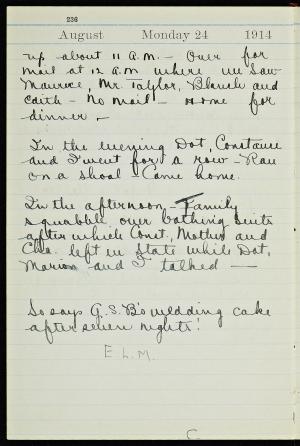 236
August Monday 24 1914
up about 11 A.M. - Over for
mail at 12 A.M. where we saw
Maurice, Mr. Taylor, Blanch and
Edith - No mail - Home for
dinner -
In the evening Dot, Constance
and I went for a row - Ran
on a shoal - Came home.
In the afternoon - Family
squabble over bathing suits
after which Const, Mother and
Cha. left in state while Dot,
Marion and I talked —
So says G.S.B's wedding cake
after seven nights!
E.L.M.